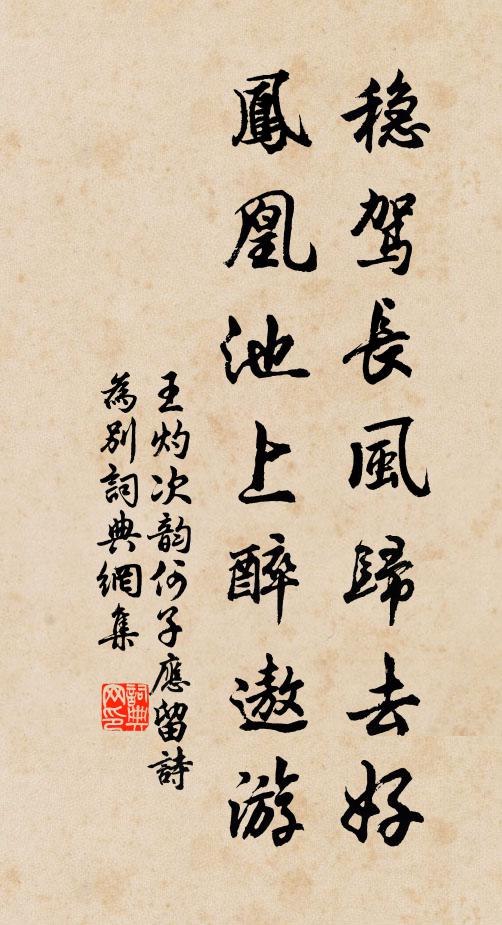 穏駕長風歸去好
鳳凰池上醉遨游
王灼次韵何子應留詩
為別詞典網集
詞典网印